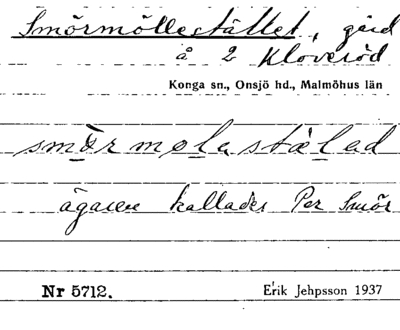 Smörmöllestället, gård
å 2 Kloveröd
Konga sn., Onsjö hd., Malmöhus län
smòrmolestàled
ägaren kallades Per Smör
Nr 5712. Erik Jehpsson 1937